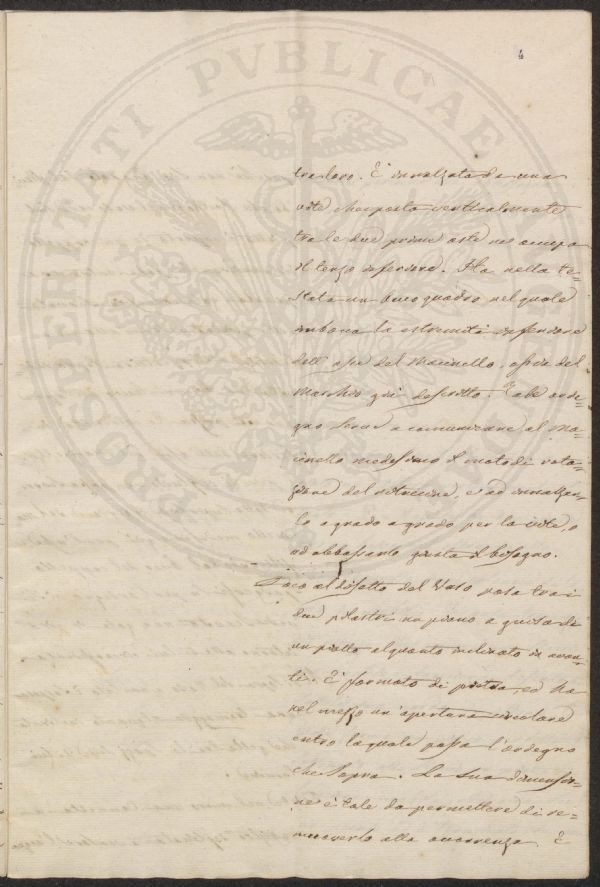 4
PROSPERITATI PVBLICAE AVGENDAE
tra loro. È innalzata da una
vite che posta verticalmente
tra le due prime aste ne occupa
il terzo inferiore. Ha nella te=
stata un buco quadro nel quale
imbocca la estremità inferiore
dell' asse del Macinello, ossia del
Maschio già descritto. Tale orde=
gno serve a comunicare al Ma=
cinello medesimo il moto di rota=
zione del ritrecine, e ad innalzar=
lo a grado a grado per la vite, o
ad abbassarlo giusta il bisogno.
Poco al disotto del Vaso posa tra i
due pilastri un piano a guisa di
un piatto alquanto inclinato in avan=
ti. È formato di pietra, ed ha
nel mezzo un' apertura circolare
entro la quale passa l'ordegno
che sopra. La sua dimensio=
ne è tale da permettere di re=
muoverlo alla occorrenza. È